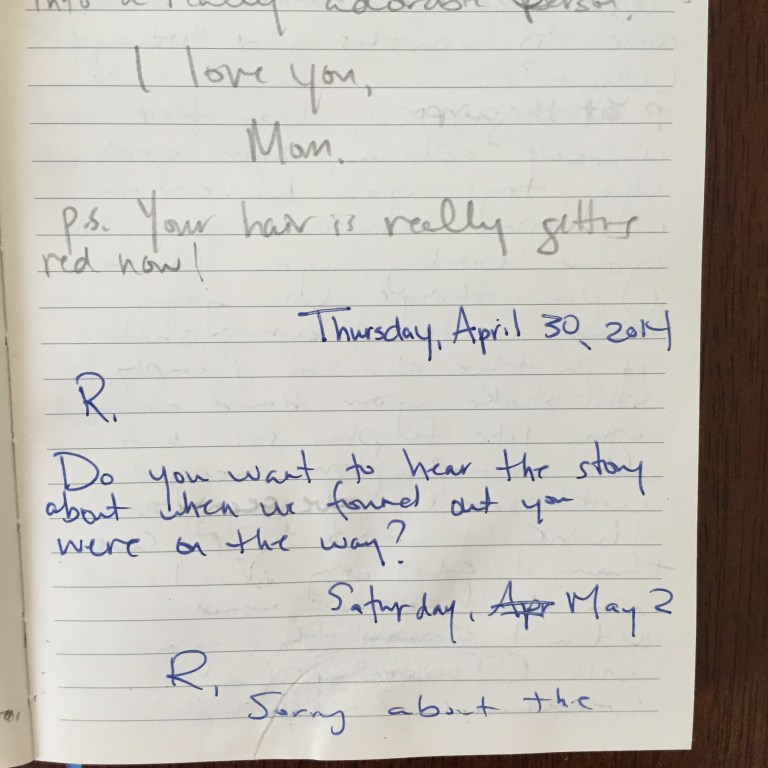 into a really adorable person.
I love you,
Mom.
p.s. Your hair is really getting
red now!
Thursday, April 30, 2014
R,
Do you want to hear the story
about when we found out you
were on the way?
Saturday, Apr May 2
R,
Sorry about the